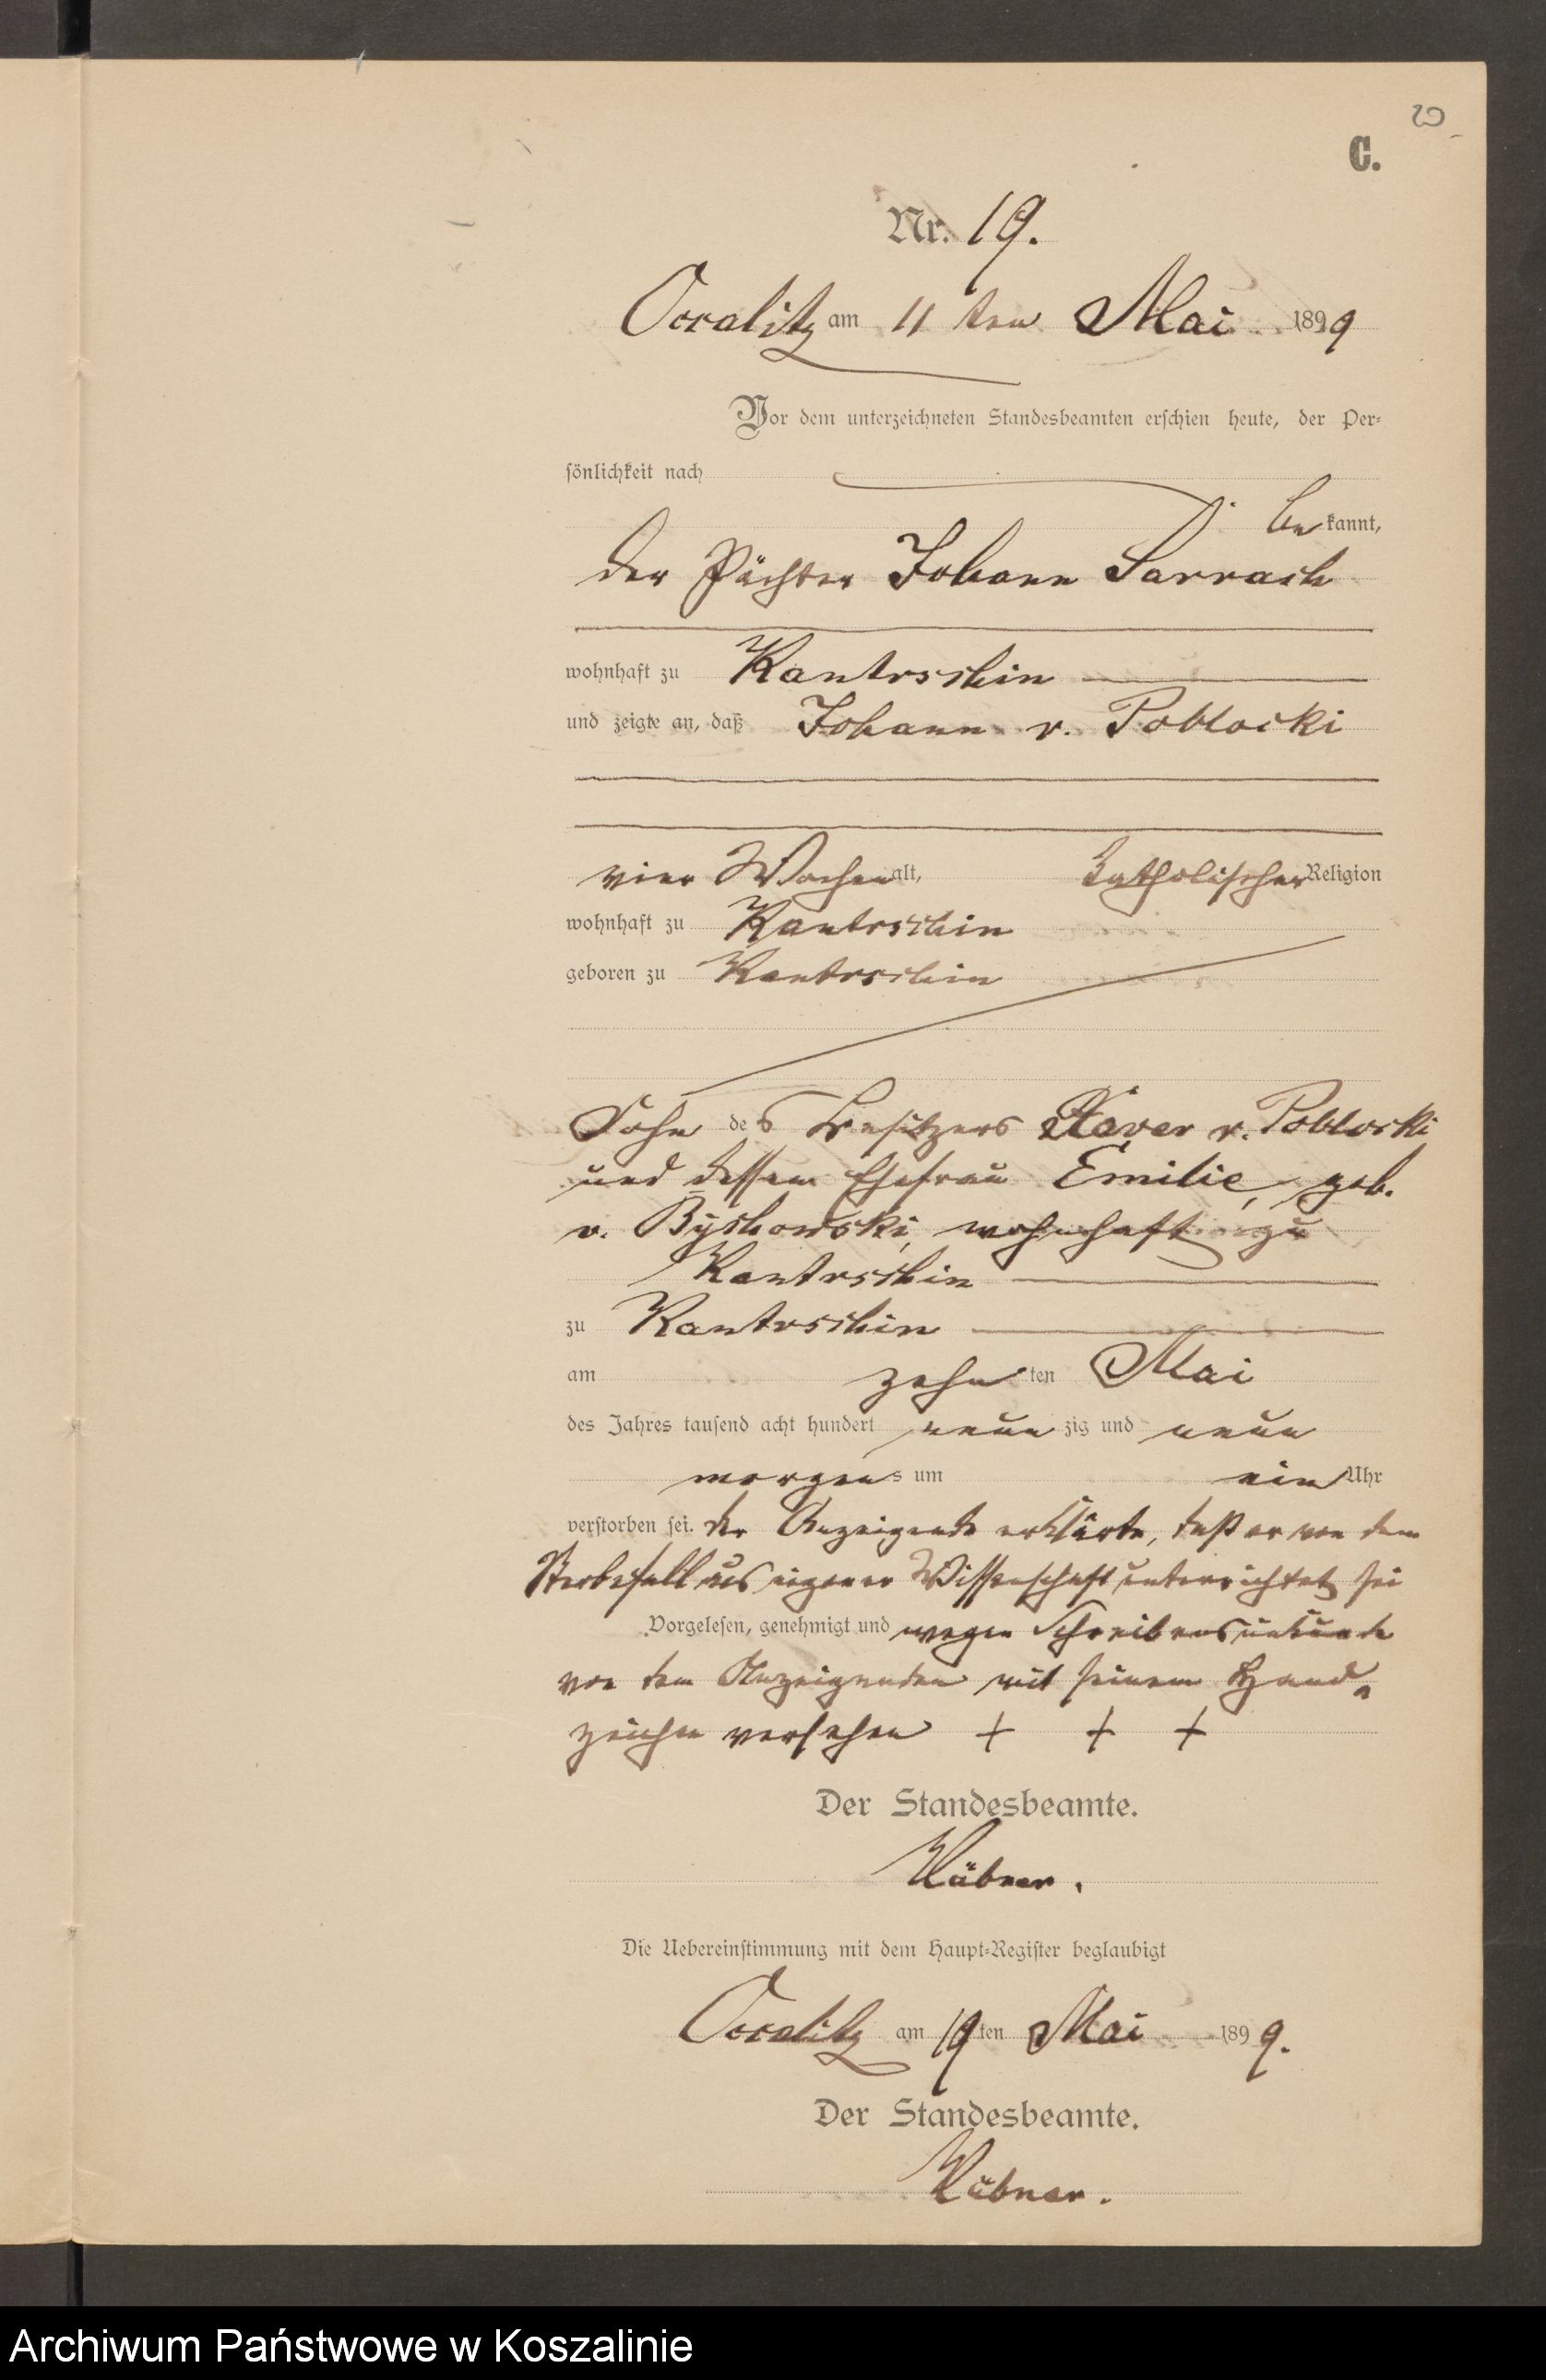 20
C.
Nr. 19.
Occalitz am 11 ten Mai 1899
Vor dem unterzeichneten Standesbeamten erschien heute, der Per-
sönlichkeit nach
be kannt,
der Pächter Johann Sarrach
wohnhaft zu Kantrschin
und zeigte an, daß Johann v. Poblocki
vier Wochen alt, katholischer Religion
wohnhaft zu Kantrschin
geboren zu Kantrschin
Sohn des Besitzers Xaver v. Poblocki
und dessen Ehefrau Emilie, geb.
v. Byshowski, wohnhaft zu
Kantrschin
zu Kantrschin
am zehn ten Mai
des Jahres tausend acht hundert neun zig und neun
morgens um ein Uhr
verstorben sei. der Anzeigende erklärte, daß er von dem
Sterbefall aus eigener Wissenschaft unterrichtet sei
Vorgelesen, genehmigt und wegen Schreibensunkunde
von dem Anzeigenden mit seinem Hand-
zeichen versehen + + +
Der Standesbeamte.
Kübner.
Die Uebereinstimmung mit dem Haupt-Register beglaubigt
Occalitz am 19 ten Mai 1899.
Der Standesbeamte.
Kübner.
Archiwum Państwowe w Koszalinie